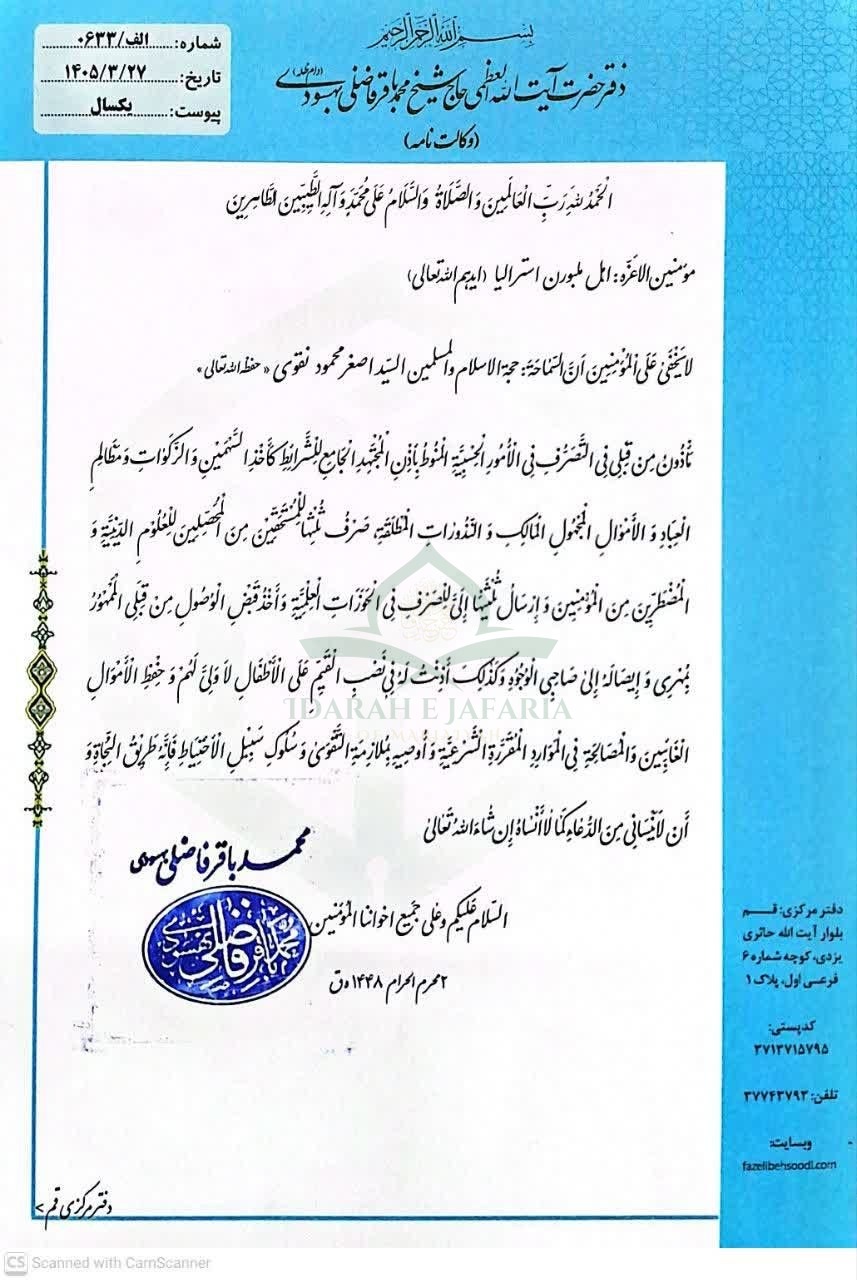 بسم الله الرحمن الرحیم
دفتر حضرت آیت الله العظمی حاج شیخ محمد باقر فاضلی بهسودی (دام ظله)
(وکالت نامه)
شماره: الف/۰۶۳۳
تاریخ: ۱۴۰۵/۳/۲۷
پیوست: یکسال
اَلْحَمْدُ لِلّٰهِ رَبِّ الْعَالَمِینَ وَ الصَّلَاةُ وَالسَّلَامُ عَلَی مُحَمَّدٍ وَ آلِهِ الطَّیِّبِینَ الطَّاهِرِینَ
مؤمنین الاعزه: اهل ملبورن استرالیا (ایدهم الله تعالی)
لَا یَخْفَیٰ عَلَی الْمُؤْمِنِینَ أَنَّ السَّمَاحَةَ: حجة الاسلام والمسلمین السیّد اصغر محمود نقوی «حفظه الله تعالی»
مَأْذُونٌ مِن قِبَلِی فِی التَّصَرُّفِ فِی الْأُمُورِ الْحِسْبِیَّةِ الْمَنُوطِ بِأَذِنِ الْمُجْتَهِدِ الْجَامِعِ لِلشَّرَائِطِ کَأَخْذِ السَّهْمَیْنِ وَ الزَّکَوَاتِ وَ مَظَالِمِ
الْعِبَادِ وَ الْأَمْوَالِ الْمَجْهُولِ الْمَالِکِ وَ النَّذُورَاتِ الْمُطْلَقَةِ، صَرْفُ ثُلُثِهَا لِلْمُسْتَحَقِّینَ مِنَ الْمُحَصِّلِینَ لِلْعُلُومِ الدِّینِیَّةِ وَ
الْمُضْطَرِّینَ مِنَ الْمُؤْمِنِینَ وَ إِرْسَالُ ثُلُثَیْهَا إِلَیَّ لِلصَّرْفِ فِی الْحَوْزَاتِ الْعِلْمِیَّةِ وَ أَخْذُ قَبْضِ الْوُصُولِ مِنْ قِبَلِی الْمَمْهُورُ
بِمُهْرِی وَ إِیصَالَهُ إِلَیٰ صَاحِبِی الْوُجُوهِ وَ کَذٰلِکَ أَذِنْتُ لَهُ فِی نَصْبِ الْقَیِّمِ عَلَی الْأَطْفَالِ لَا وَلِیَّ لَهُمْ وَ حِفْظِ الْأَمْوَالِ
الْغَائِبِینَ وَالْمَصَالِحَةِ فِی الْمَوَارِدِ الْمُقَرَّرَةِ الشَّرْعِیَّةِ وَ أُوصِیهِ بِمُلَازِمَةِ التَّقْوَیٰ وَ سُلُوکِ سَبِیلِ الْأَحْتِیَاطِ فَإِنَّهُ طَرِیقُ النَّجَاةِ وَ
أَن لَا یَنْسَانِی مِنَ الدُّعَاءِ کَمَا لَا أَنْسَاهُ إِن شَاءَ اللهُ تَعَالَیٰ
محمد باقر فاضلی بهسودی
محمد باقر فاضلی بهسودی
السلام علیکم و علی جمیع اخواننا المؤمنین
۲ محرم الحرام ۱۴۴۸ ه ق
IDARAH E JAFARIA
دفتر مرکزی: قم
بلوار آیت الله حائری
یزدی، کوچه شماره ۶
فرعی اول، پلاک ۱
کدپستی:
۳۷۱۳۷۱۵۷۹۵
تلفن: ۳۷۷۴۳۷۹۳
وبسایت:
fazelibehsoodi.com
دفتر مرکزی قم >
CS Scanned with CamScanner